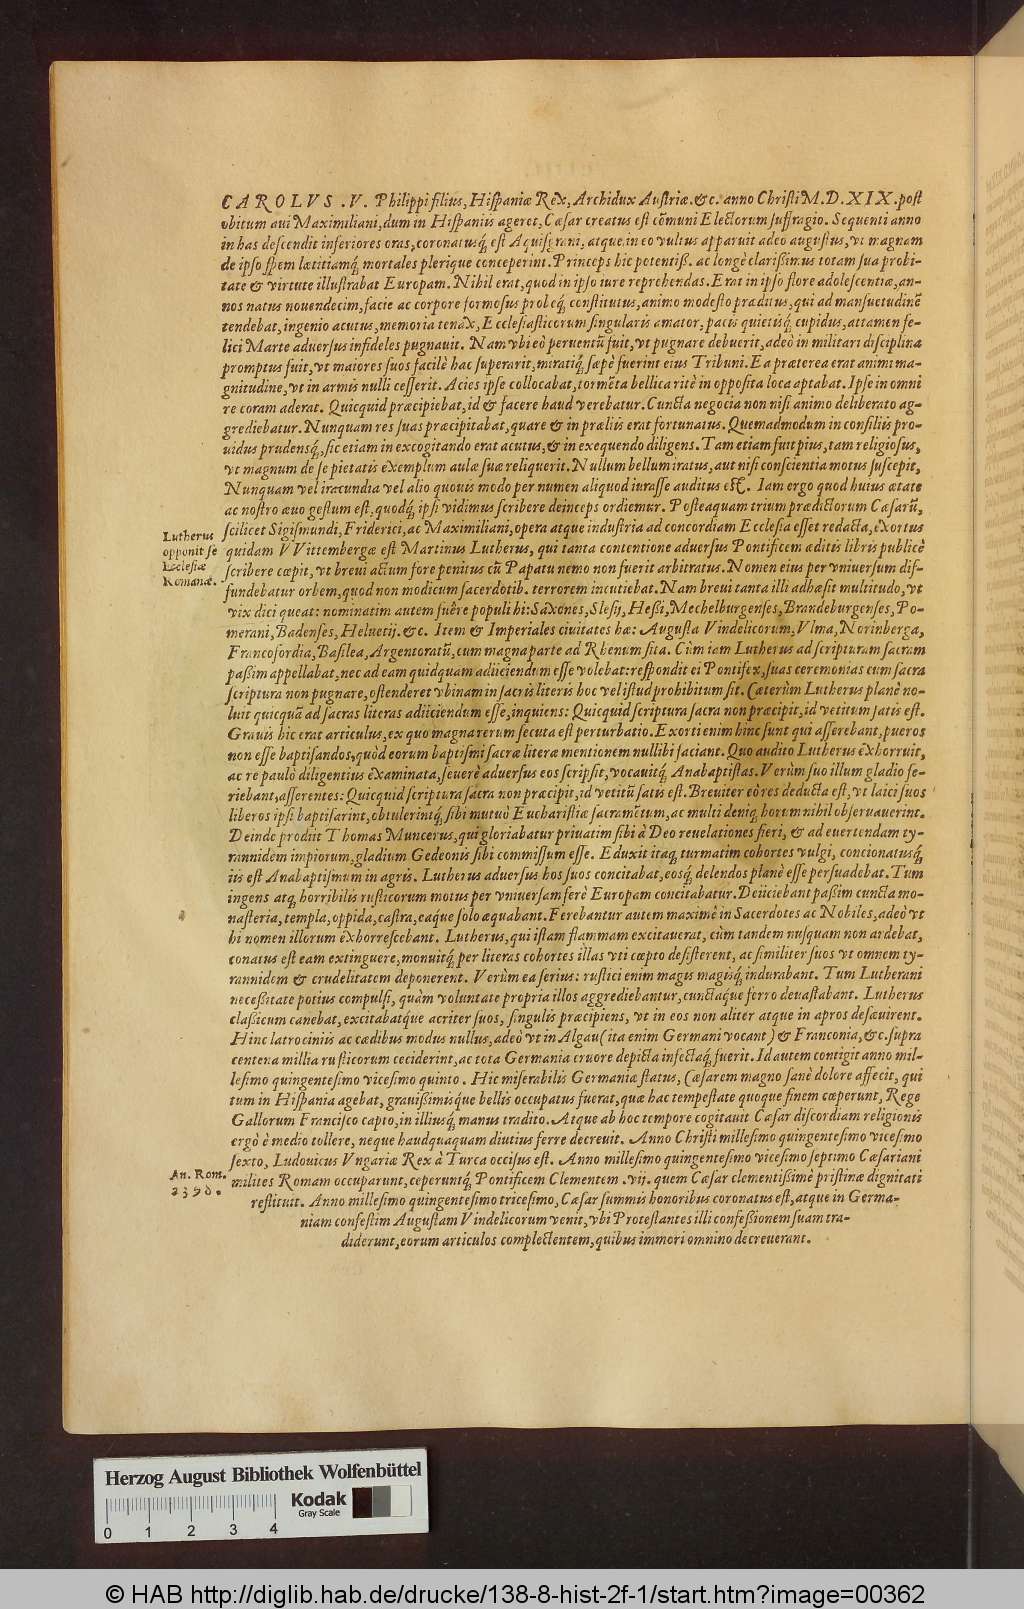 CAROLVS .V. Philippi filius, Hiſpaniæ Rex, Archidux Auſtriæ.&c. anno Chriſti M.D.XIX. poſt
obitum aui Maximiliani, dum in Hiſpaniis ageret, Cæſar creatus eſt cōmuni Electorum ſuffragio. Sequenti anno
in has deſcendit inferiores oras, coronatusq́ eſt Aquiſgrani, atque in eo vultus apparuit adeo auguſtus, vt magnam
de ipſo ſpem lætitiamq́ mortales plerique conceperint. Princeps hic potentiß. ac longè clarißimus totam ſua probi-
tate & virtute illuſtrabat Europam. Nihil erat, quod in ipſo iure reprehendas. Erat in ipſo flore adoleſcentiæ, an-
nos natus nouendecim, facie ac corpore formoſus probeq́ conſtitutus, animo modeſto præditus, qui ad manſuetudinē
tendebat, ingenio acutus, memoria tenax, Eccleſiaſticorum ſingularis amator, pacis quietisq́ cupidus, attamen fe-
lici Marte aduerſus infideles pugnauit. Nam vbi eò peruentū fuit, vt pugnare debuerit, adeò in militari diſciplina
promptus fuit, vt maiores ſuos facilè hac ſuperarit, miratiq́ ſæpè fuerint eius Tribuni. Ea præterea erat animi ma-
gnitudine, vt in armis nulli ceſſerit. Acies ipſe collocabat, tormēta bellica ritè in oppoſita loca aptabat. Ipſe in omni
re coram aderat. Quicquid præcipiebat, id & facere haud verebatur. Cuncta negocia non niſi animo deliberato ag-
grediebatur. Nunquam res ſuas præcipitabat, quare & in præliis erat fortunatus. Quemadmodum in conſiliis pro-
uidus prudensq́, ſic etiam in excogitando erat acutus, & in exequendo diligens. Tam etiam fuit pius, tam religioſus,
vt magnum de ſe pietatis exemplum aulæ ſuæ reliquerit. Nullum bellum iratus, aut niſi conſcientia motus ſuſcepit,
Nunquam vel iracundia vel alio quouis modo per numen aliquod iuraſſe auditus eſt. Iam ergo quod huius ætate
ac noſtro æuo geſtum eſt, quodq́ ipſi vidimus ſcribere deinceps ordiemur. Poſteaquam trium prædictorum Cæſarū,
ſcilicet Sigiſmundi, Friderici, ac Maximiliani, opera atque induſtria ad concordiam Eccleſia eſſet redacta, exortus
Lutherus
opponit ſe
Eccleſiæ
Romanæ.
quidam VVittembergæ eſt Martinus Lutherus, qui tanta contentione aduerſus Pontificem æditis libris publicè
ſcribere cœpit, vt breui actum fore penitus cū Papatu nemo non fuerit arbitratus. Nomen eius per vniuerſum diſ-
fundebatur orbem, quod non modicum ſacerdotib. terrorem incutiebat. Nam breui tanta illi adhæſit multitudo, vt
vix dici queat: nominatim autem fuēre populi hi: Saxones, Sleſij, Heßi, Mechelburgenſes, Brandeburgenſes, Po-
merani, Badenſes, Heluetij.&c. Item & Imperiales ciuitates hæ: Auguſta Vindelicorum, Vlma, Norinberga,
Francofordia, Baſilea, Argentoratū, cum magna parte ad Rhenum ſita. Cùm iam Lutherus ad ſcripturam ſacram
paßim appellabat, nec ad eam quidquam adiiciendum eſſe volebat: reſpondit ei Pontifex, ſuas ceremonias cum ſacra
ſcriptura non pugnare, oſtenderet vbinam in ſacris literis hoc vel iſtud prohibitum ſit. Cæterùm Lutherus planè no-
luit quicquā ad ſacras literas adiiciendum eſſe, inquiens: Quicquid ſcriptura ſacra non præcipit, id vetitum ſatis eſt.
Grauis hic erat articulus, ex quo magna rerum ſecuta eſt perturbatio. Exorti enim hinc ſunt qui aſſerebant, pueros
non eſſe baptiſandos, quòd eorum baptiſmi ſacræ literæ mentionem nullibi faciant. Quo audito Lutherus exhorruit,
ac re paulò diligentius examinata, ſeuerè aduerſus eos ſcripſit, vocauitq́ Anabaptiſtas. Verùm ſuo illum gladio fe-
riebant, aſſerentes: Quicquid ſcriptura ſacra non præcipit, id vetitū ſatis eſt. Breuiter eò res deducta eſt, vt laici ſuos
liberos ipſi baptiſarint, obtulerintq́ ſibi mutuò Euchariſtiæ ſacramētum, ac multi deniq́ horum nihil obſeruauerint.
Deinde prodiit Thomas Muncerus, qui gloriabatur priuatim ſibi à Deo reuelationes fieri, & ad euertendam ty-
rannidem impiorum, gladium Gedeonis ſibi commiſſum eſſe. Eduxit itaq́ turmatim cohortes vulgi, concionatusq́
iis eſt Anabaptiſmum in agris. Lutherus aduerſus hos ſuos concitabat, eosq́ delendos planè eſſe perſuadebat. Tum
ingens atq́ horribilis ruſticorum motus per vniuerſam ferè Europam concitabatur. Deiiciebant paßim cuncta mo-
naſteria, templa, oppida, caſtra, eaq́ue ſolo æquabant. Ferebantur autem maximè in Sacerdotes ac Nobiles, adeò vt
hi nomen illorum exhorreſcebant. Lutherus, qui iſtam flammam excitauerat, cùm tandem nuſquam non ardebat,
conatus eſt eam extinguere, monuitq́ per literas cohortes illas vti cœpto deſiſterent, ac ſimiliter ſuos vt omnem ty-
rannidem & crudelitatem deponerent. Verùm ea ſerius: ruſtici enim magis magisq́ indurabant. Tum Lutherani
neceßitate potius compulſi, quàm voluntate propria illos aggrediebantur, cunctaq́ue ferro deuaſtabant. Lutherus
claßicum canebat, excitabatq́ue acriter ſuos, ſingulis præcipiens, vt in eos non aliter atque in apros deſæuirent.
Hinc latrociniis ac cædibus modus nullus, adeò vt in Algau (ita enim Germani vocant) & Franconia, &c. ſupra
centena millia ruſticorum ceciderint, ac tota Germania cruore depicta infectaq́ fuerit. Id autem contigit anno mil-
leſimo quingenteſimo viceſimo quinto. Hic miſerabilis Germaniæ ſtatus, Cæſarem magno ſanè dolore affecit, qui
tum in Hiſpania agebat, grauißimisque bellis occupatus fuerat, quæ hac tempeſtate quoque finem cœperunt, Rege
Gallorum Franciſco capto, in illiusq́ manus tradito. Atque ab hoc tempore cogitauit Cæſar diſcordiam religionis
ergò è medio tollere, neque haudquaquam diutius ferre decreuit. Anno Chriſti milleſimo quingenteſimo viceſimo
ſexto, Ludouicus Vngariæ Rex à Turca occiſus eſt. Anno milleſimo quingenteſimo viceſimo ſeptimo Cæſariani
An. Rom.
milites Romam occuparunt, ceperuntq́ Pontificem Clementem .vij. quem Cæſar clementißimè priſtinæ dignitati
reſtituit. Anno milleſimo quingenteſimo triceſimo, Cæſar ſummis honoribus coronatus eſt, atque in Germa-
niam confeſtim Auguſtam Vindelicorum venit, vbi Proteſtantes illi confeßionem ſuam tra-
diderunt, eorum articulos complectentem, quibus immori omnino decreuerant.
Herzog August Bibliothek Wolfenbüttel
Kodak
Gray Scale
0 1 2 3 4
© HAB http://diglib.hab.de/drucke/138-8-hist-2f-1/start.htm?image=00362